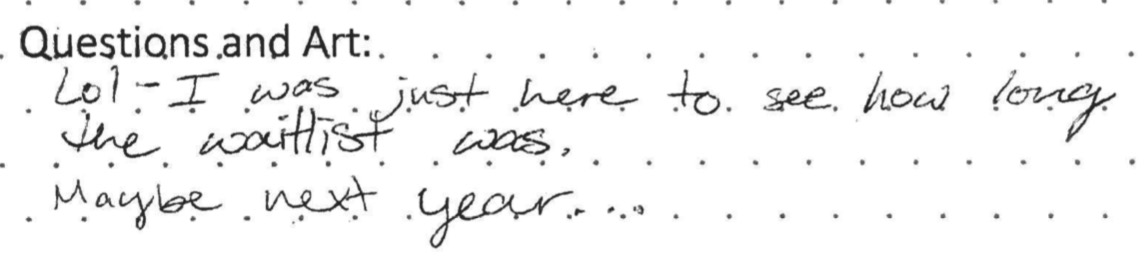 Questions and Art:
Lol - I was just here to see how long
the waitlist was.
Maybe next year....